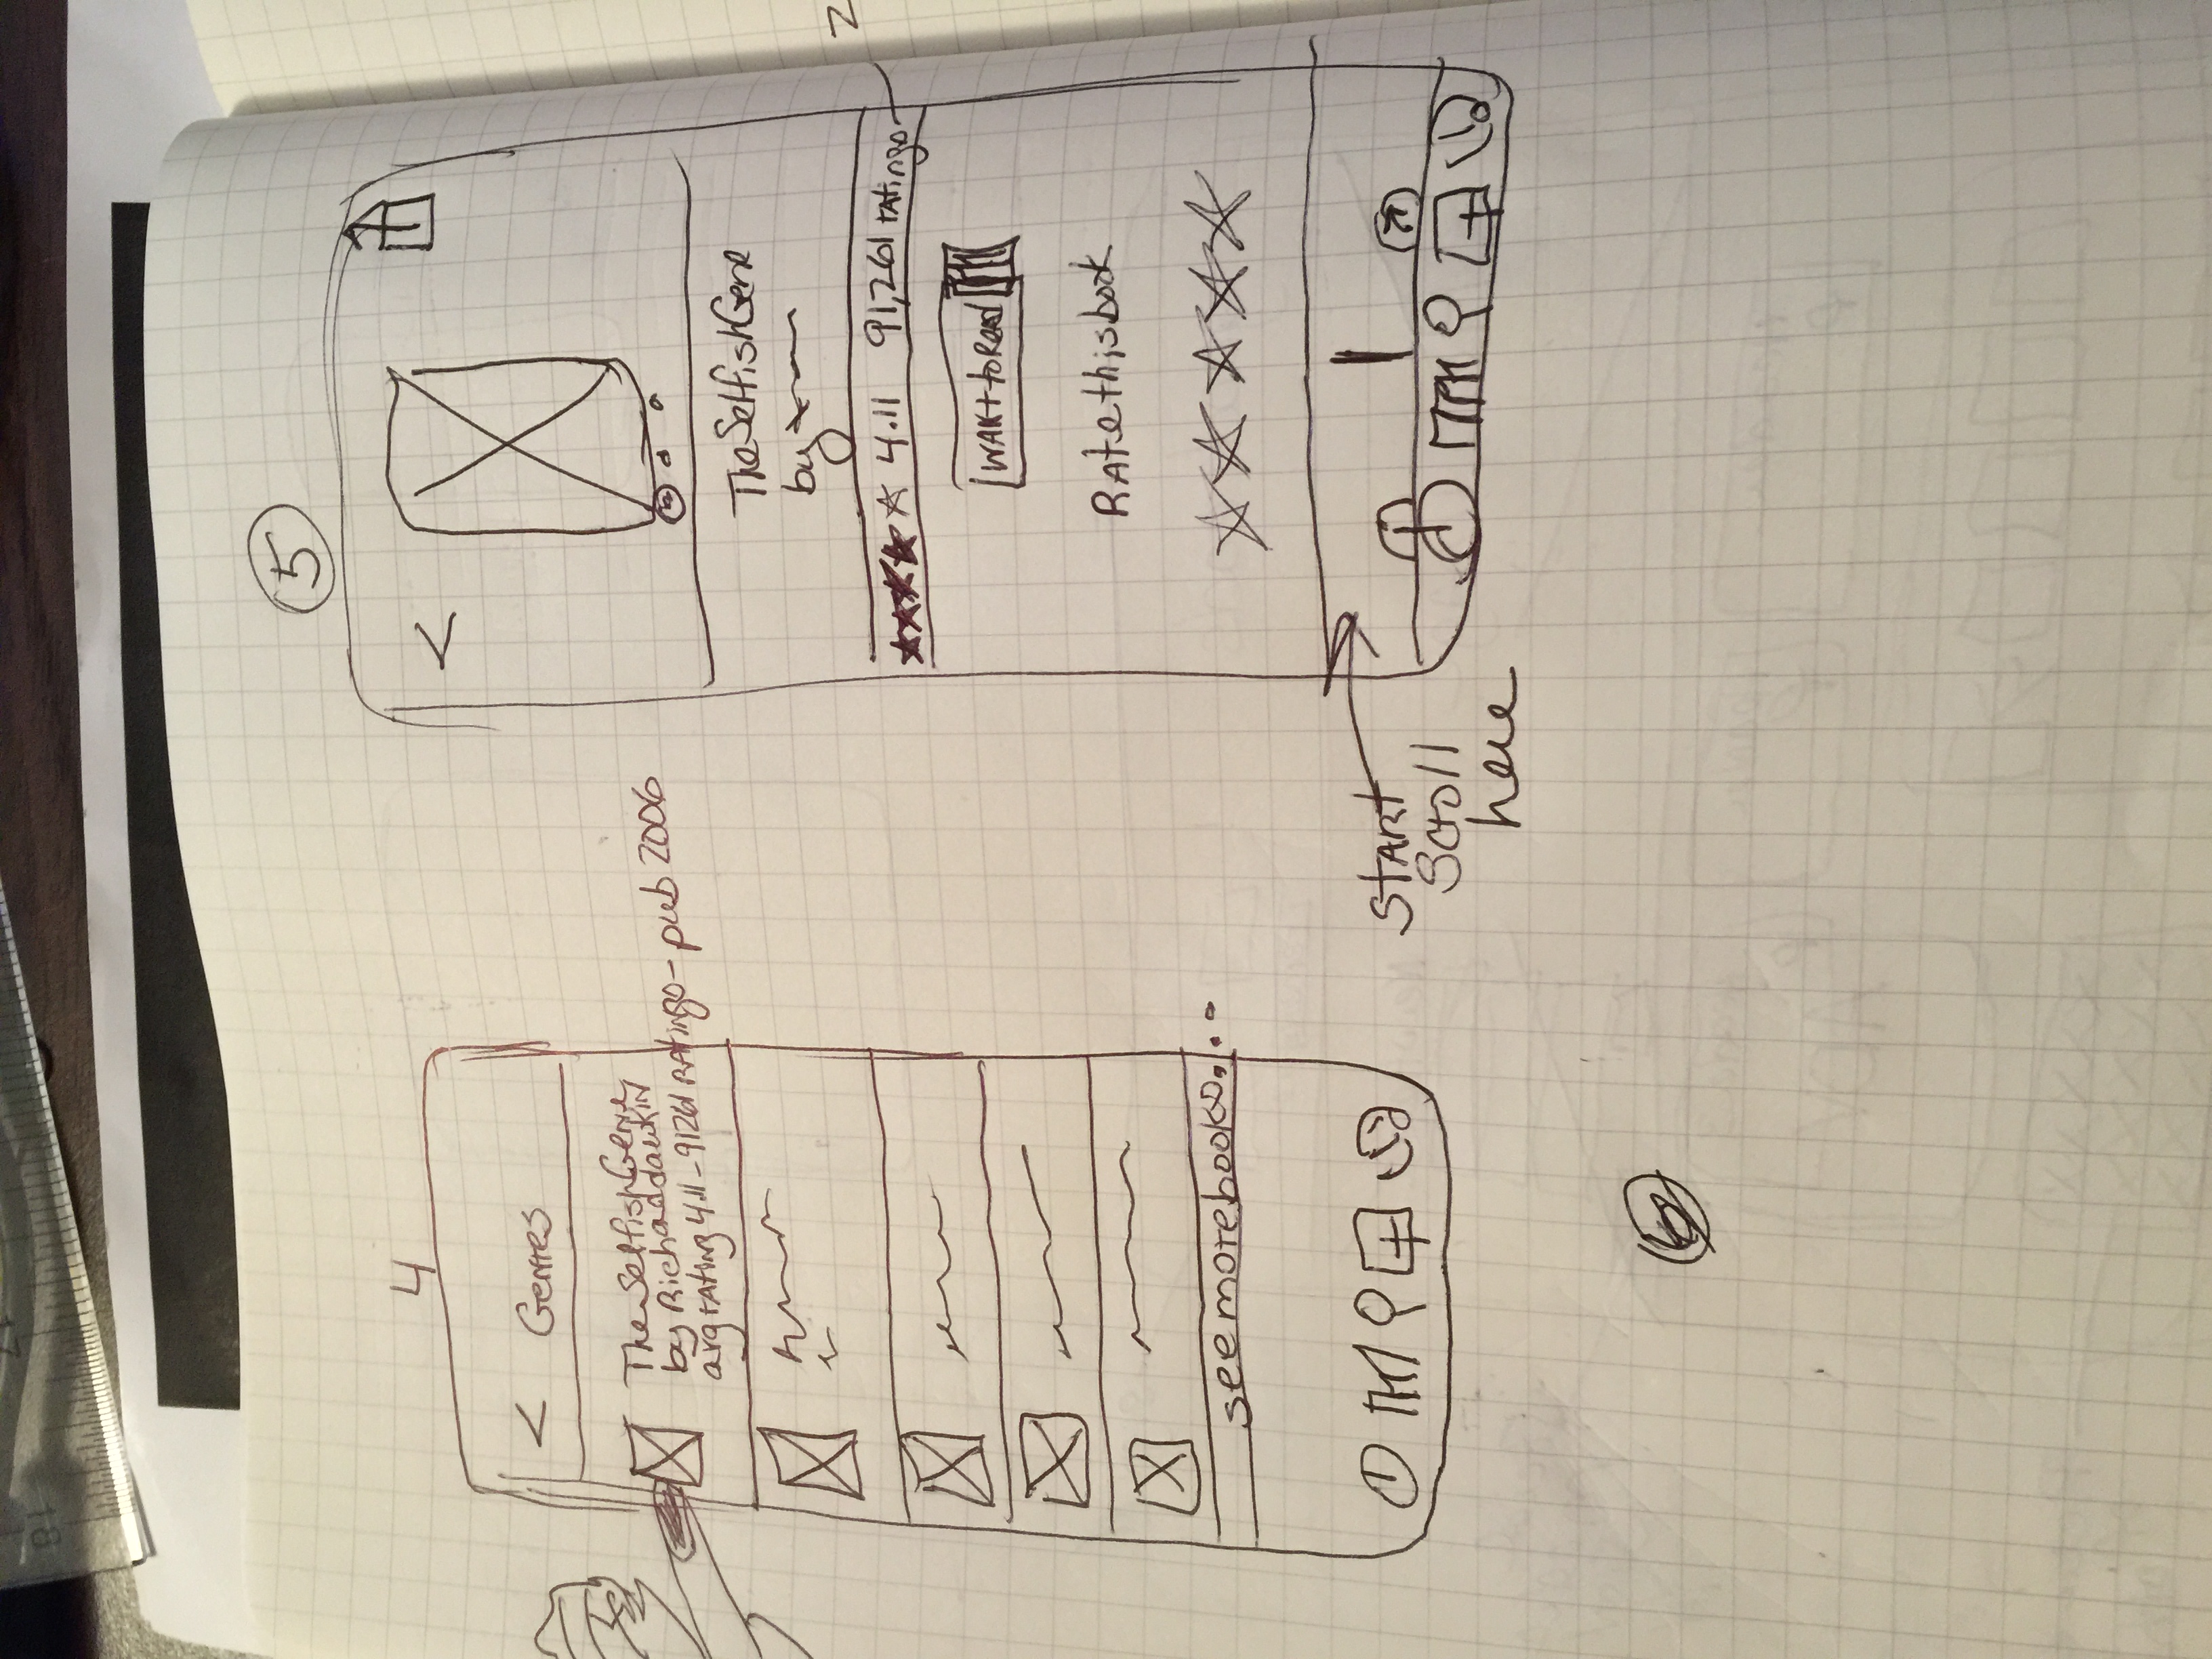 18
17
4
< Genres
The Selfish Gene
by Richard dawkin
avg rating 4.11 - 91261 RAtings - pub 2006
see more books...
5
<
The Selfish Gene
by
4.11 91,261 rAtings
WANt to Read
RAte this book
START
Scroll
here
6